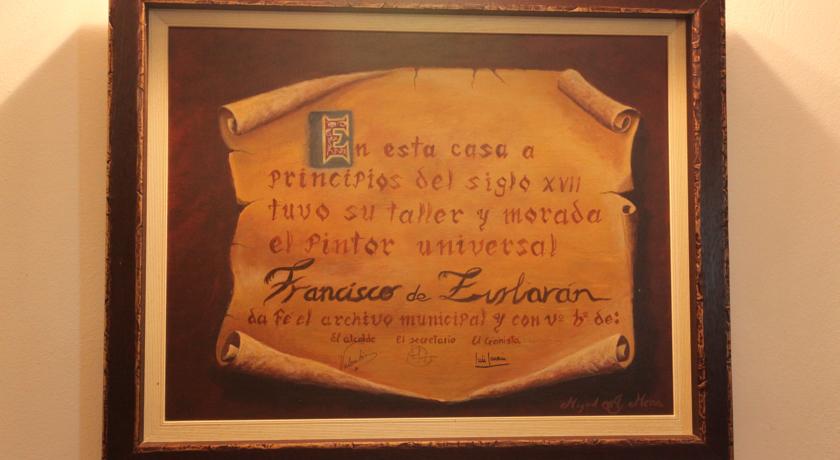 En esta casa a
principios del siglo XVII
tuvo su taller y morada
el pintor universal
Francisco de Zurbarán
da fé el archivo municipal y con vº bº de:
El alcalde El secretario El Cronista